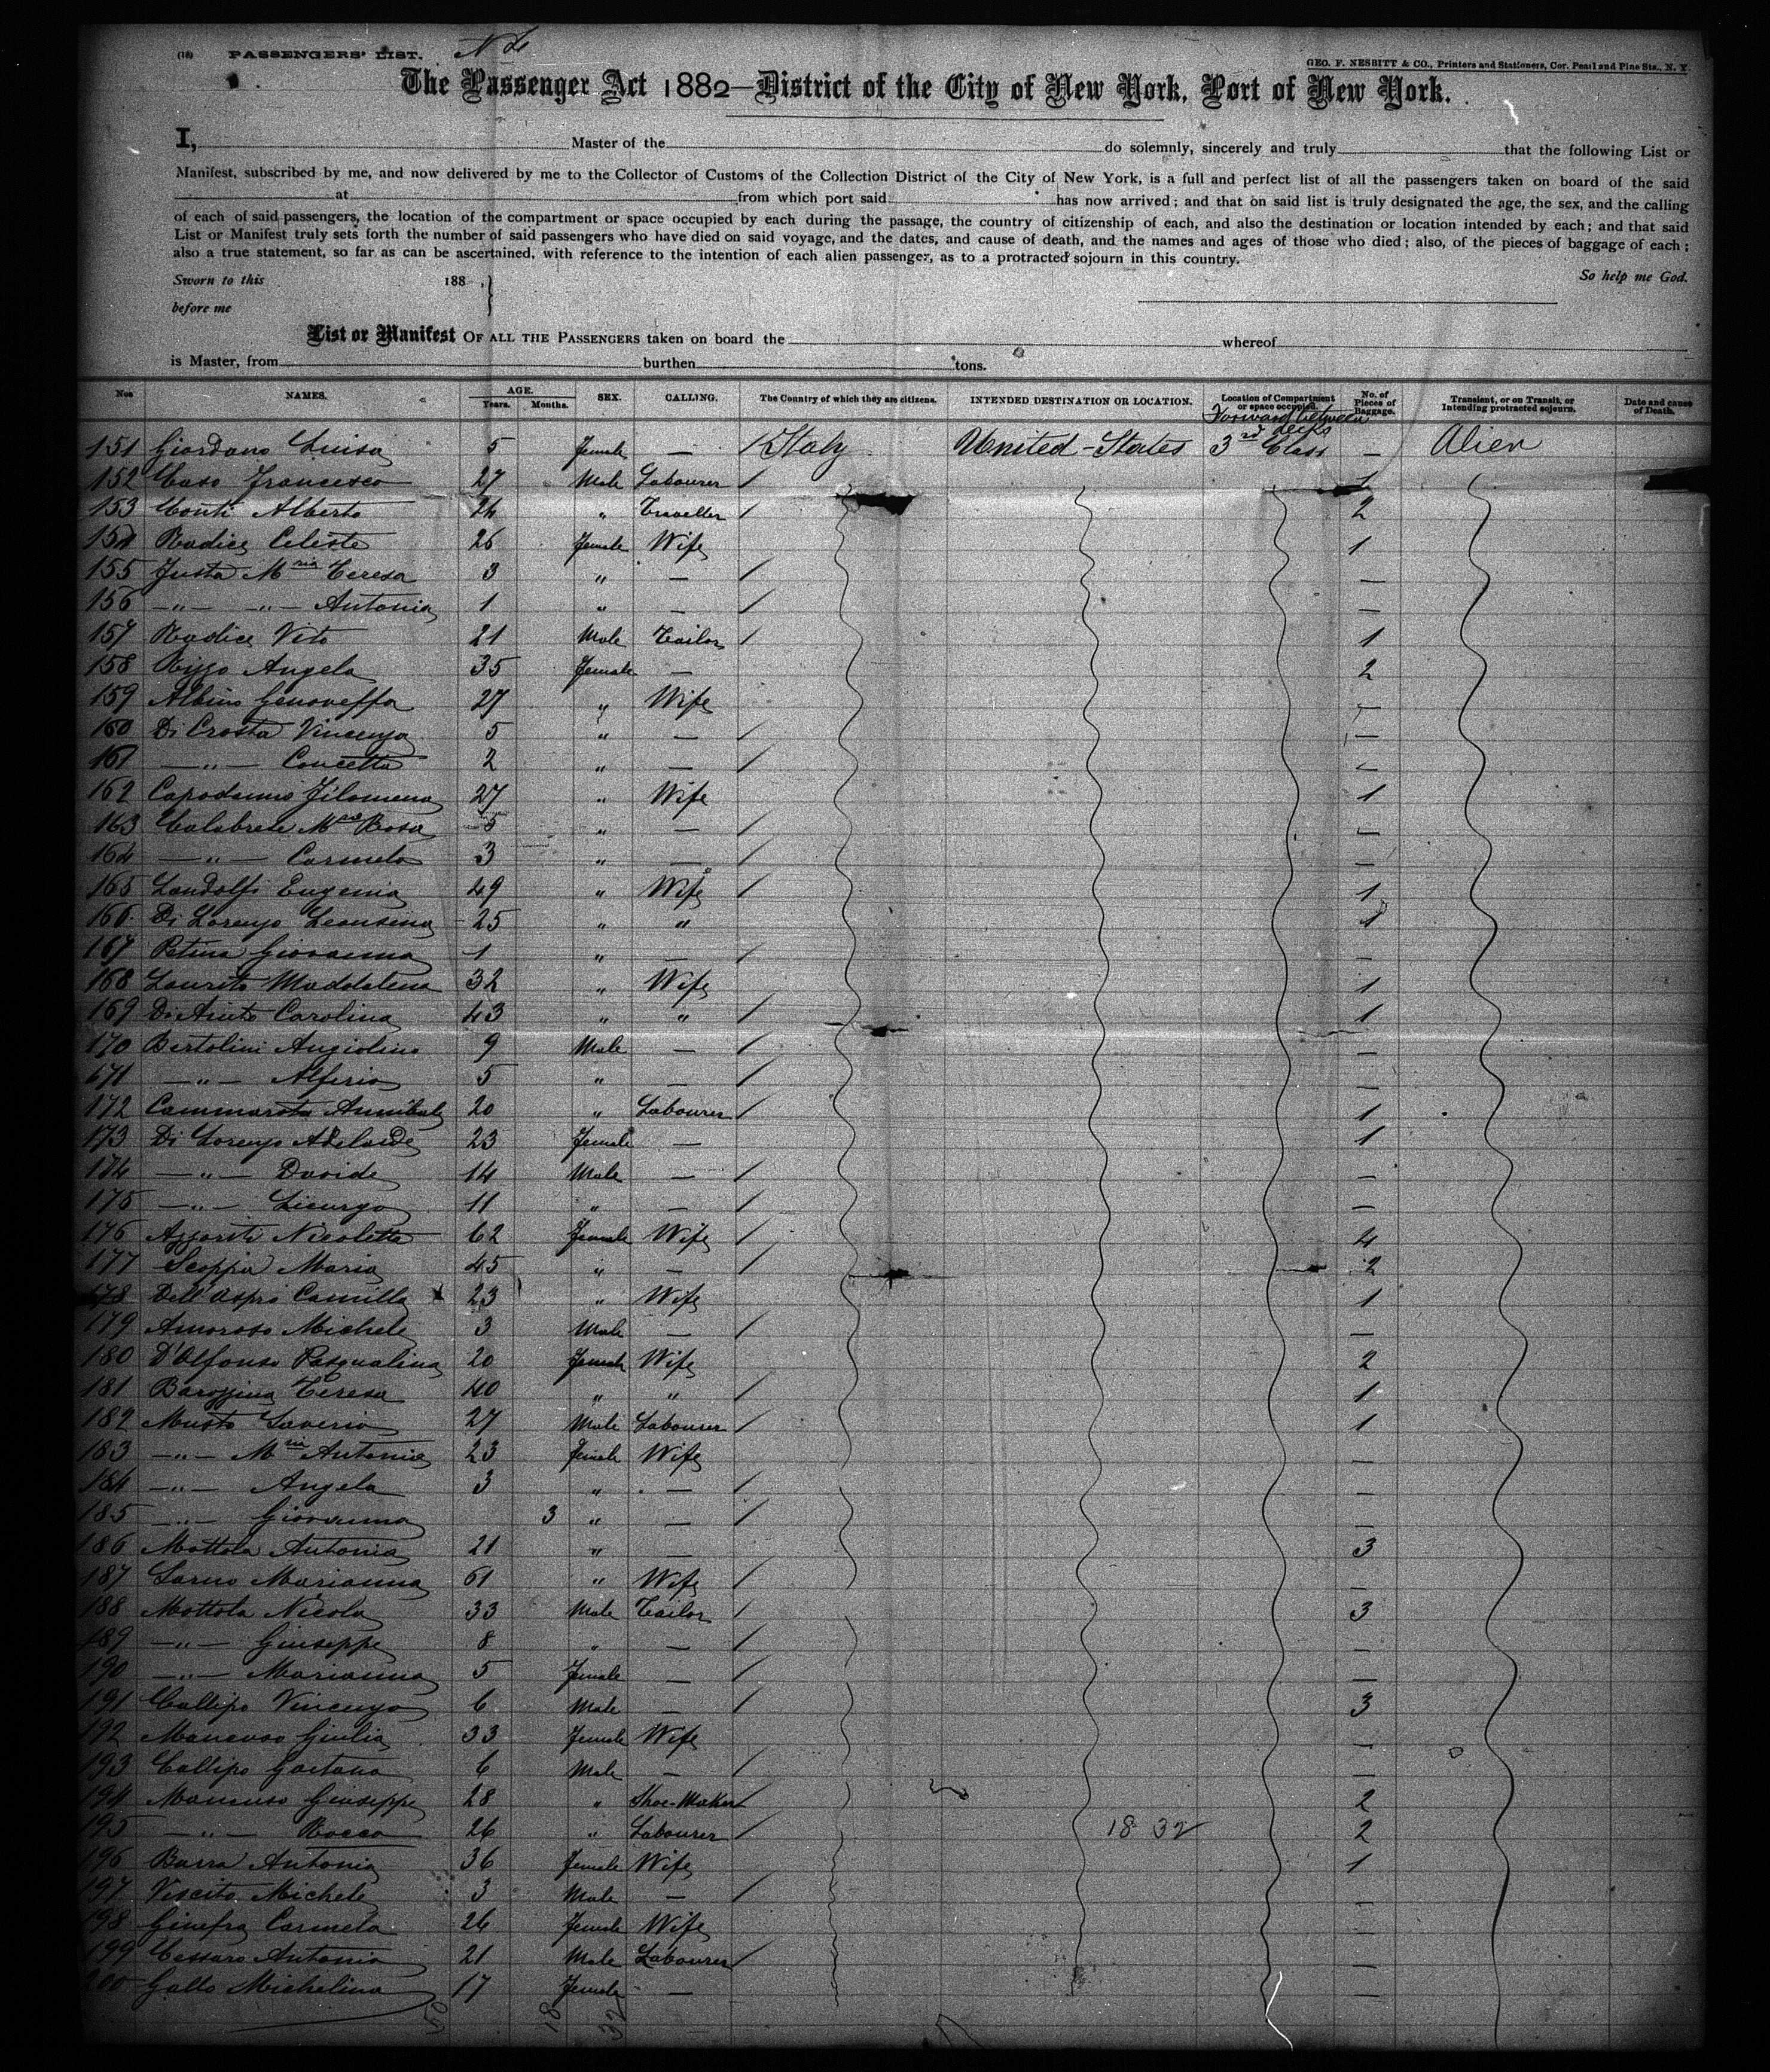 (18) PASSENGERS' LIST.
GEO. F. NESBITT & CO., Printers and Stationers, Cor. Pearl and Pine Sts., N. Y.
The Passenger Act 1882—District of the City of New York, Port of New York.
I, Master of the do solemnly, sincerely and truly that the following List or
Manifest, subscribed by me, and now delivered by me to the Collector of Customs of the Collection District of the City of New York, is a full and perfect list of all the passengers taken on board of the said
at from which port said has now arrived; and that on said list is truly designated the age, the sex, and the calling
of each of said passengers, the location of the compartment or space occupied by each during the passage, the country of citizenship of each, and also the destination or location intended by each; and that said
List or Manifest truly sets forth the number of said passengers who have died on said voyage, and the dates, and cause of death, and the names and ages of those who died; also, of the pieces of baggage of each;
also a true statement, so far as can be ascertained, with reference to the intention of each alien passenger, as to a protracted sojourn in this country.
Sworn to this 188 , So help me God.
before me
List or Manifest OF ALL THE PASSENGERS taken on board the whereof
is Master, from burthen tons.
Nos NAMES. AGE. Years. Months. SEX. CALLING. The Country of which they are citizens. INTENDED DESTINATION OR LOCATION. Location of Compartment or space occupied. No. of Pieces of Baggage. Transient, or on Transit, or Intending protracted sojourn. Date and cause of Death.
Forward between decks
151 Giordano Luisa 5 Female — Italy United-States 3rd Class — Alien
152 Caso Francesco 27 Male Labourer 1
153 Conti Alberto 24 " Traveller 2
154 Radice Celeste 26 Female Wife 1
155 Justa Mria Teresa 3 " — —
156 —"— —"— Antonia 1 " — —
157 Radice Vito 21 Male Tailor 1
158 Rizzo Angela 35 Female — 2
159 Albino Genoveffa 27 " Wife —
160 Di Crosta Vincenza 5 " — —
161 —"— Concetta 2 " — —
162 Capodanno Filomena 27 " Wife 1
163 Calabrese Mria Rosa 5 " — —
164 —"— Carmela 3 " — —
165 Landolfi Eugenia 49 " Wife 1
166 Di Lorenzo Leonsina 25 " " 1
167 Petina Giovanna 1 " — —
168 Laurito Maddalena 32 " Wife 1
169 Carolina 43 " " 1
170 Bertolini Angiolino 9 Male — —
171 —"— Alferio 5 " — —
172 Cammarota Annibale 20 " Labourer 1
173 Di Lorenzo Adelaide 23 Female — 1
174 —"— Davide 14 Male — —
175 —"— Licurgo 11 " — —
176 Azzariti Nicoletta 62 Female Wife 4
177 Scoppia Maria 45 " — 2
178 Dell'Aspro Camilla 23 " Wife 1
179 Amoroso Michele 3 Male — —
180 D'Alfonso Pasqualina 20 Female Wife 2
181 Barozzina Teresa 40 " " 1
182 Musto Saverio 27 Male Labourer 1
183 —"— Mria Antonia 23 Female Wife —
184 —"— Angela 3 " — —
185 —"— Giovanna 3 " — —
186 Mottola Antonia 21 " — 3
187 Sarno Marianna 61 " Wife —
188 Mottola Nicola 33 Male Tailor 3
189 —"— Giuseppe 8 " — —
190 —"— Marianna 5 Female — —
191 Callipo Vincenzo 6 Male — 3
192 Mancuso Giulia 33 Female Wife —
193 Callipo Gaetano 6 Male — —
194 Mancuso Giuseppe 28 " Shoe-Maker 2
195 —"— Rocco 26 " Labourer 18 32 2
196 Barra Antonia 36 Female Wife 1
197 Viscito Michele 3 Male — —
198 Ginefra Carmela 26 Female Wife —
199 Cessaro Antonio 21 Male Labourer —
200 Gallo Michelina 17 Female — —
50 18 32